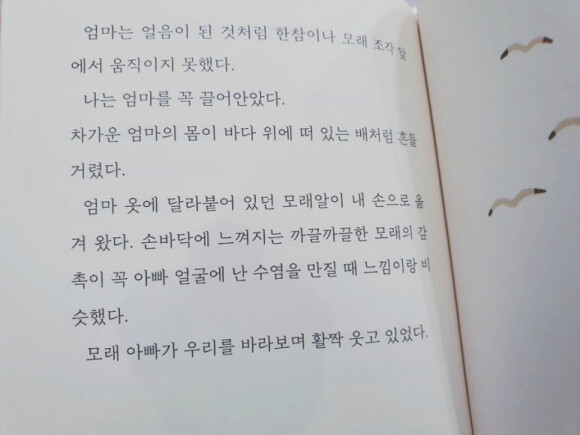 엄마는 얼음이 된 것처럼 한참이나 모래 조각 앞
에서 움직이지 못했다.
나는 엄마를 꼭 끌어안았다.
차가운 엄마의 몸이 바다 위에 떠 있는 배처럼 흔들
거렸다.
엄마 옷에 달라붙어 있던 모래알이 내 손으로 옮
겨 왔다. 손바닥에 느껴지는 까끌까끌한 모래의 감
촉이 꼭 아빠 얼굴에 난 수염을 만질 때 느낌이랑 비
슷했다.
모래 아빠가 우리를 바라보며 활짝 웃고 있었다.